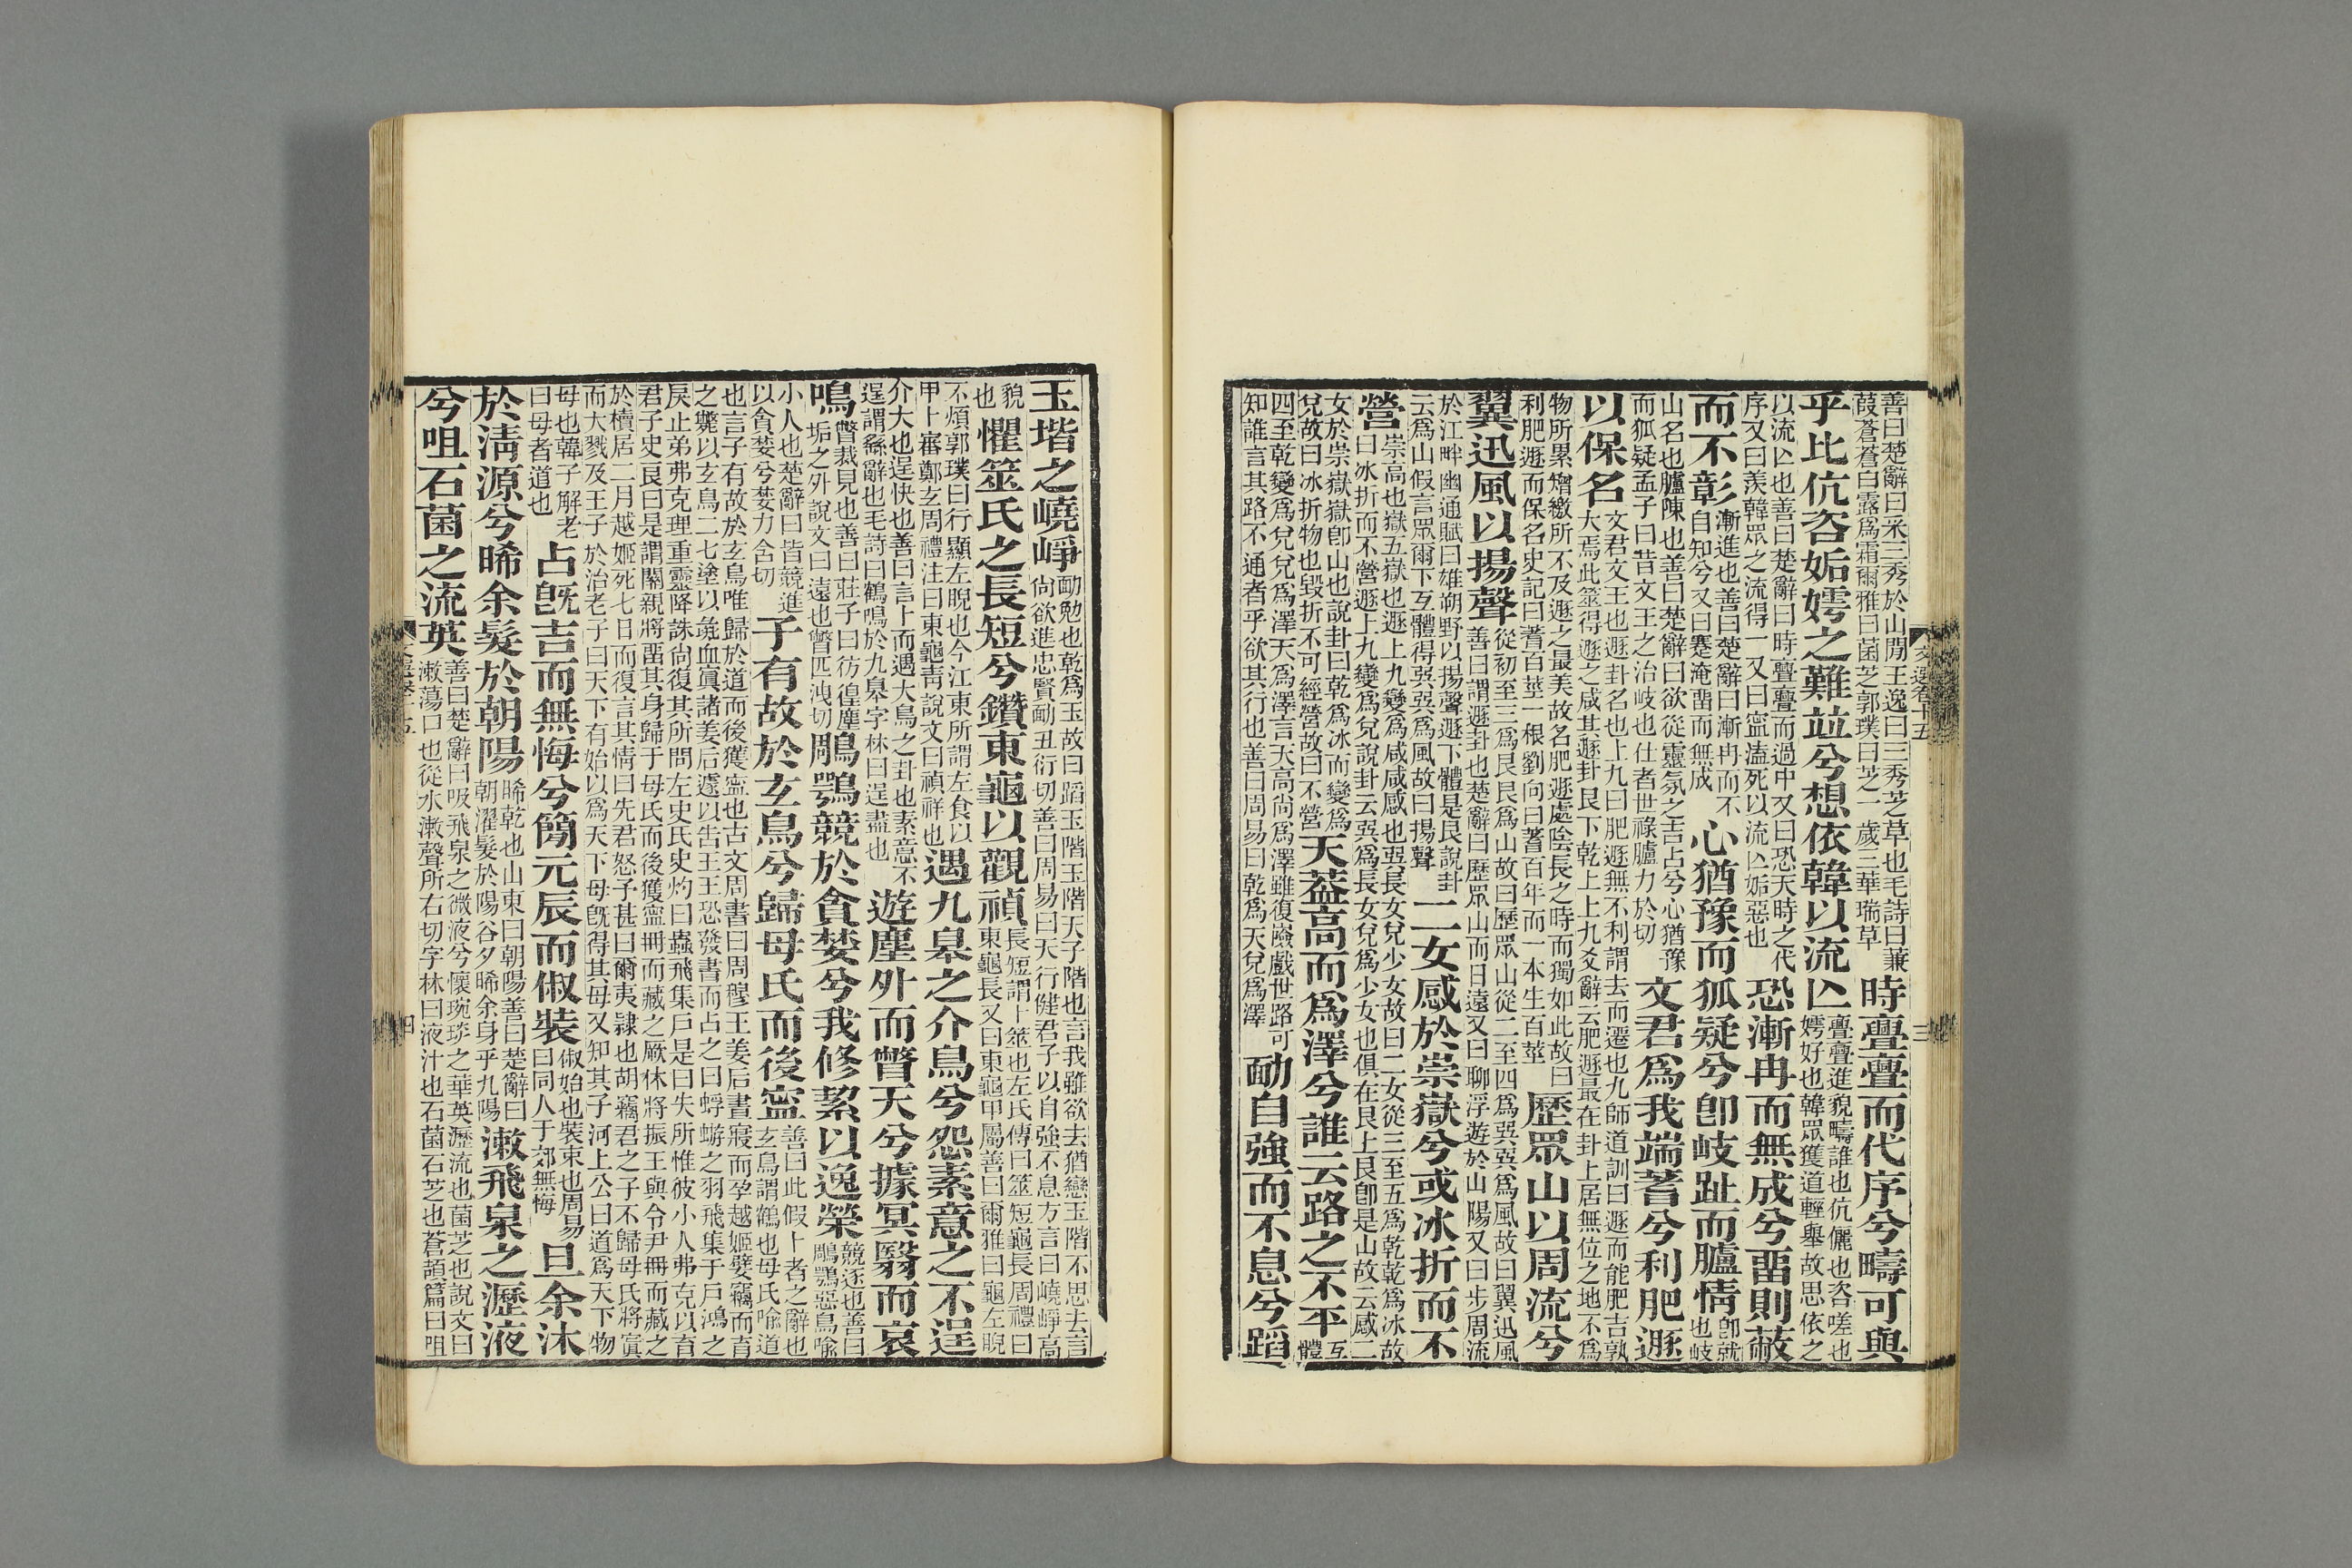 善曰楚辭曰采三秀於山閒王逸曰三秀芝草也毛詩曰蒹葭蒼蒼白露爲霜爾雅曰菌芝郭璞曰芝一歲三華瑞草時亹亹而代序兮疇可與
乎比伉咨姤嫮之難並兮想依韓以流亾亹亹進貌疇誰也伉儷也咨嗟也嫮好也韓眾獲道輕舉故思依之
以流亾也善曰楚辭曰時亹亹而過中又曰恐天時之代序又曰羨韓眾之流得一又曰寍溘死以流亾姤惡也恐漸冉而無成兮畱則蔽
而不彰漸進也善曰楚辭曰漸冉而不自知兮又曰蹇淹畱而無成心猶豫而狐疑兮卽岐趾而臚情卽就也岐
山名也臚陳也善曰楚辭曰欲從靈氛之吉占兮心猶豫而狐疑孟子曰昔文王之治岐也仕者世祿臚力於切文君爲我端蓍兮利肥遯
以保名文君文王也遯卦名也上九曰肥遯無不利謂去而遷也九師道訓曰遯而能肥吉孰大焉此筮得遯之咸其遯卦艮下乾上上九爻辭云肥遯最在卦上居無位之地不爲
物所累矰繳所不及遯之最美故名肥遯處陰長之時而獨如此故曰利肥遯而保名史記曰蓍百莖一根劉向曰蓍百年而一本生百莖歷眾山以周流兮
翼迅風以揚聲從初至三爲艮艮爲山故曰歷眾山從二至四爲巽巽爲風故曰翼迅風善曰謂遯卦也楚辭曰歷眾山而日遠又曰聊浮遊於山陽又曰步周流
於江畔幽通賦曰雄朔野以揚聲遯下體是艮說卦云爲山假言眾爾下互體得巽巽爲風故曰揚聲二女感於崇嶽兮或冰折而不
營崇高也嶽五嶽也遯上九變爲咸咸感也巽長女兌少女故曰二女從三至五爲乾乾爲冰故曰冰折而不營遯上九變爲兌說卦云巽爲長女兌爲少女也俱在艮上艮卽是山故云感二
女於崇嶽嶽卽山也說卦曰乾爲冰而變爲兌故曰冰折物也毀折不可經營故曰不營天蓋高而爲澤兮誰云路之不平互體
四至乾變爲兌兌爲澤天爲澤言天高尚爲澤雖復嶮戲世路可知誰言其路不通者乎欲其行也善曰周易曰乾爲天兌爲澤勔自強而不息兮蹈
文選卷十五
三
玉堦之嶢崢勔勉也乾爲玉故曰蹈玉階玉階天子階也言我雖欲去猶戀玉階不思去言尙欲進忠賢勔丑衍切善曰周易曰天行健君子以自強不息方言曰嶢崢高
貌也懼筮氏之長短兮鑽東龜以觀禎長短謂卜筮也左氏傳曰筮短龜長周禮曰東龜長又曰東龜甲屬善曰爾雅曰龜左睨
不煩郭璞曰行顯左睨也今江東所謂左食以甲卜審鄭玄周禮注曰東龜靑說文曰禎祥也遇九皋之介鳥兮怨素意之不逞
介大也逞快也善曰言卜而遇大鳥之卦也素意不逞謂繇辭也毛詩曰鶴鳴於九皋字林曰逞盡也遊塵外而瞥天兮據冥翳而哀
鳴瞥裁見也善曰莊子曰彷徨塵垢之外說文曰遠也瞥匹洩切鵰鶚競於貪婪兮我修絜以逸榮競逐也善曰鵰鶚惡鳥喩
小人也楚辭曰皆競進以貪婪兮婪力含切子有故於玄鳥兮歸母氏而後寍善曰此假卜者之辭也玄鳥謂鶴也母氏喩道
也言子有故於玄鳥唯歸於道而後獲寍也古文周書曰周穆王姜后晝寢而孕越姬嬖竊而育之斃以玄鳥二七塗以彘血寘諸姜后遽以告王王恐發書而占之曰蜉蝣之羽飛集于戶鴻之
戾止弟弗克理重靈降誅尙復其所問左史氏史灼曰蟲飛集戶是曰失所惟彼小人弗克以育君子史良曰是謂關親將畱其身歸于母氏而後獲寍冊而藏之厥休將振王與令尹冊而藏之
於櫝居二月越姬死七日而復言其情曰先君怒予甚曰爾夷隷也胡竊君之子不歸母氏將寘而大戮及王子於治老子曰天下有始以爲天下母旣得其母又知其子河上公曰道爲天下物
母也韓子解老曰母者道也占旣吉而無悔兮簡元辰而俶裝俶始也裝束也周易曰同人于郊無悔旦余沐
於淸源兮晞余髮於朝陽晞乾也山東曰朝陽善曰楚辭曰朝濯髮於陽谷夕晞余身乎九陽漱飛泉之瀝液
兮咀石菌之流英善曰楚辭曰吸飛泉之微液兮懷琬琰之華英瀝流也菌芝也說文曰漱蕩口也從水漱聲所右切字林曰液汁也石菌石芝也蒼頡篇曰咀
四